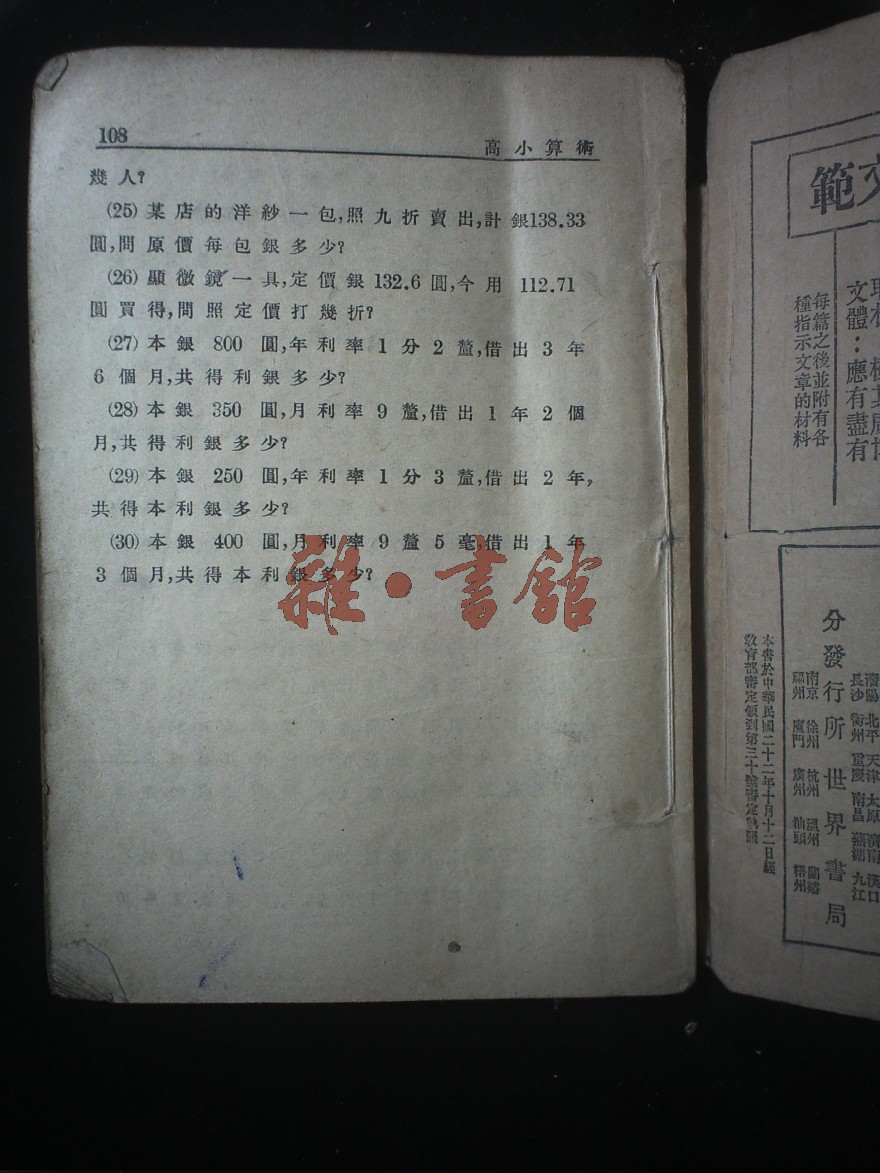 108
高小算術
幾人?
(25) 某店的洋紗一包,照九折賣出,計銀138.33
圓,問原價每包銀多少?
(26) 顯微鏡一具,定價銀 132.6 圓,今用 112.71
圓買得,問照定價打幾折?
(27) 本銀 800 圓,年利率1分2釐,借出3年
6個月,共得利銀多少?
(28) 本銀 350 圓,月利率9釐,借出1年2個
月,共得利銀多少?
(29) 本銀 250 圓,年利率1分3釐,借出2年,
共得本利銀多少?
(30) 本銀 400 圓,月利率9釐5毫,借出1年
3個月,共得本利銀多少?
雜·書館
範
文體:應有盡有
每篇之後並附有各
種指示文章的材料
分發行所世界書局
瀋陽 北平 天津 太原 濟南 漢口
長沙 衡州 重慶 南昌 蕪湖 九江
南京 徐州 杭州 溫州
福州 廈門 廣州 汕頭 梧州
本書於中華民國二十二年十月十二日經
教育部審定領到第三十號審定執照